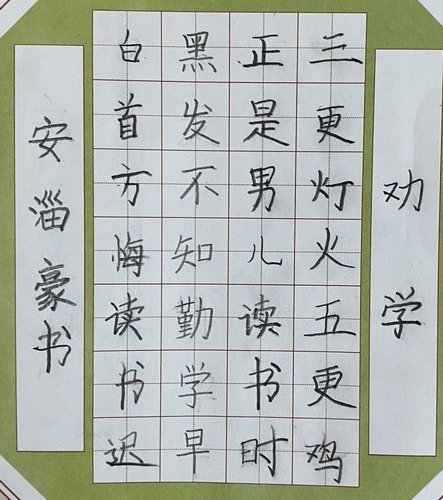 劝学
三更灯火五更鸡
正是男儿读书时
黑发不知勤学早
白首方悔读书迟
安淄豪书